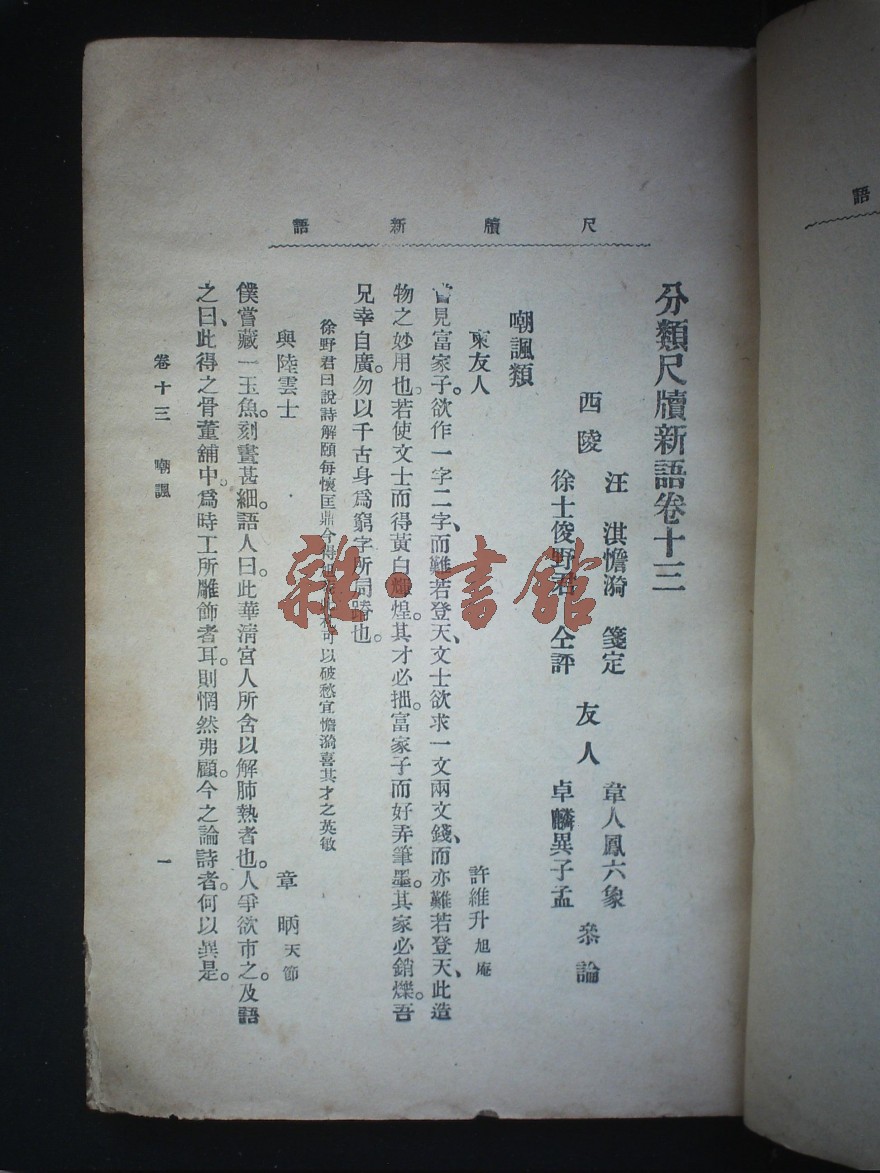 語
尺牘新語
分類尺牘新語卷十三
西陵 汪淇憺漪 箋定
徐士俊野君 仝評
友人 章人鳳六象
卓麟異子孟 叅論
嘲諷類
柬友人 許維升旭庵
嘗見富家子。欲作一字二字、而難若登天、文士欲求一文兩文錢、而亦難若登天、此造
物之妙用也。若使文士而得黃白輝煌。其才必拙。富家子而好弄筆墨。其家必銷爍。吾
兄幸自廣。勿以千古身爲窮字所局蹐也。
徐野君曰說詩解頤每懷匡鼎今得 可以破愁宜憺漪喜其才之英敏
與陸雲士 章昞天節
僕嘗藏一玉魚。刻畫甚細。語人曰。此華淸宮人所含以解肺熱者也。人爭欲市之。及語
之曰、此得之骨董舖中。爲時工所雕飾者耳。則惘然弗顧。今之論詩者。何以異是。
卷十三 嘲諷 一
雜·書館